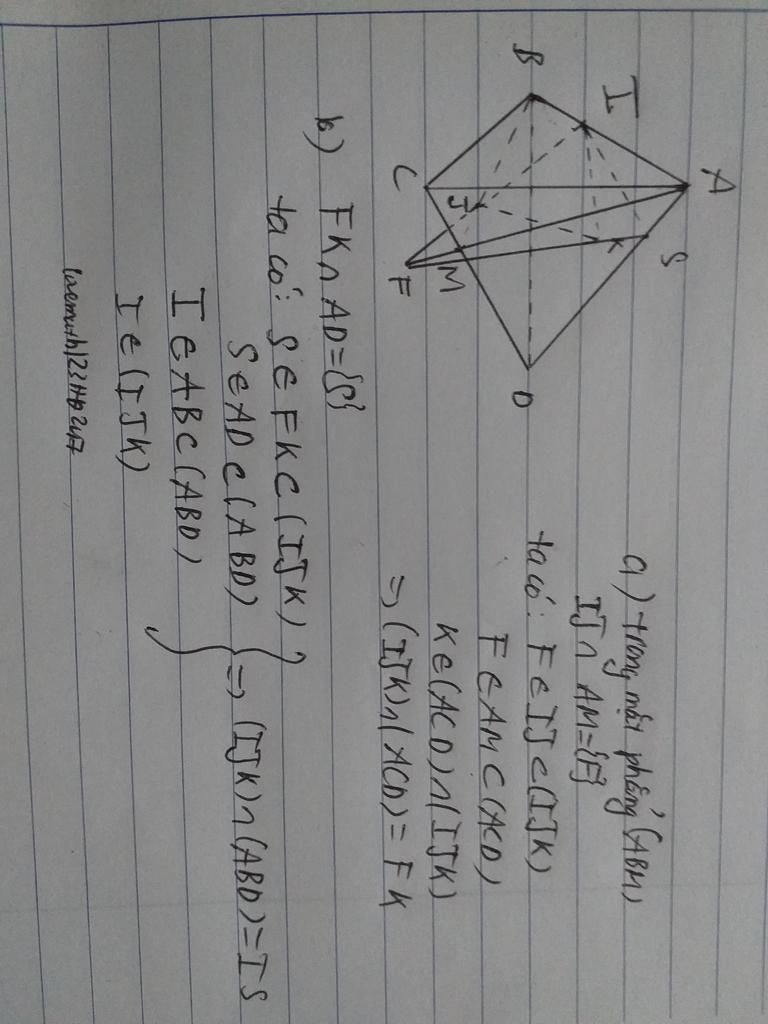 A
I
S
B
K
C
J
M
F
D
a) trong mặt phẳng (ABM)
IJ ∩ AM = {F}
ta có: F ∈ IJ ⊂ (IJK)
F ∈ AM ⊂ (ACD)
K ∈ (ACD) ∩ (IJK)
=> (IJK) ∩ (ACD) = FK
b) FK ∩ AD = {S}
ta có: S ∈ FK ⊂ (IJK)
S ∈ AD ⊂ (ABD)
I ∈ AB ⊂ (ABD)
I ∈ (IJK)
=> (IJK) ∩ (ABD) = IS